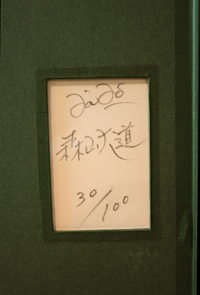 森山大道
30/100